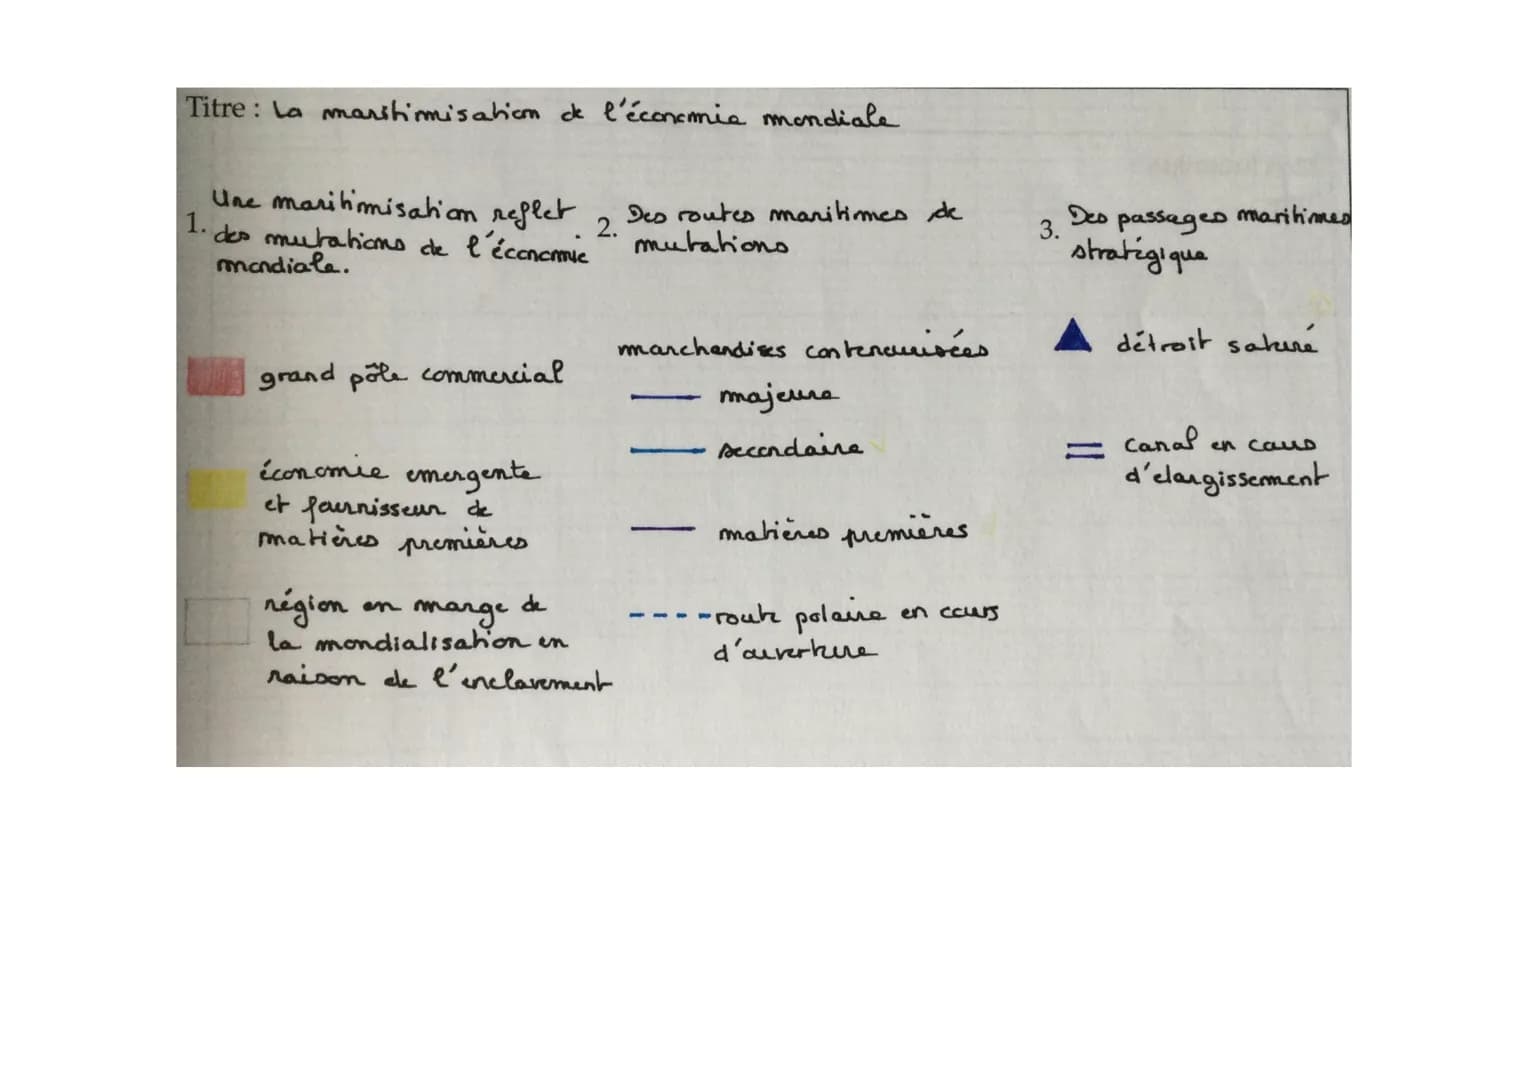 Titre : La maritimisation de l'économie mondiale
1. Une maritimisation reflet
des mutations de l'économie
mondiale.
grand pôle commercial
économie emergente
et fournisseur de
matières premières
région en marge de
la mondialisation en
raison de l'enclavement
2. Des routes maritimes de
mutations
marchandises conteneurisées
majeure
secondaire
matières premières
route polaire en cours
d'ouverture
3. Des passages maritimes
stratégique
détroit saturé
canal en cours
d'elargissement